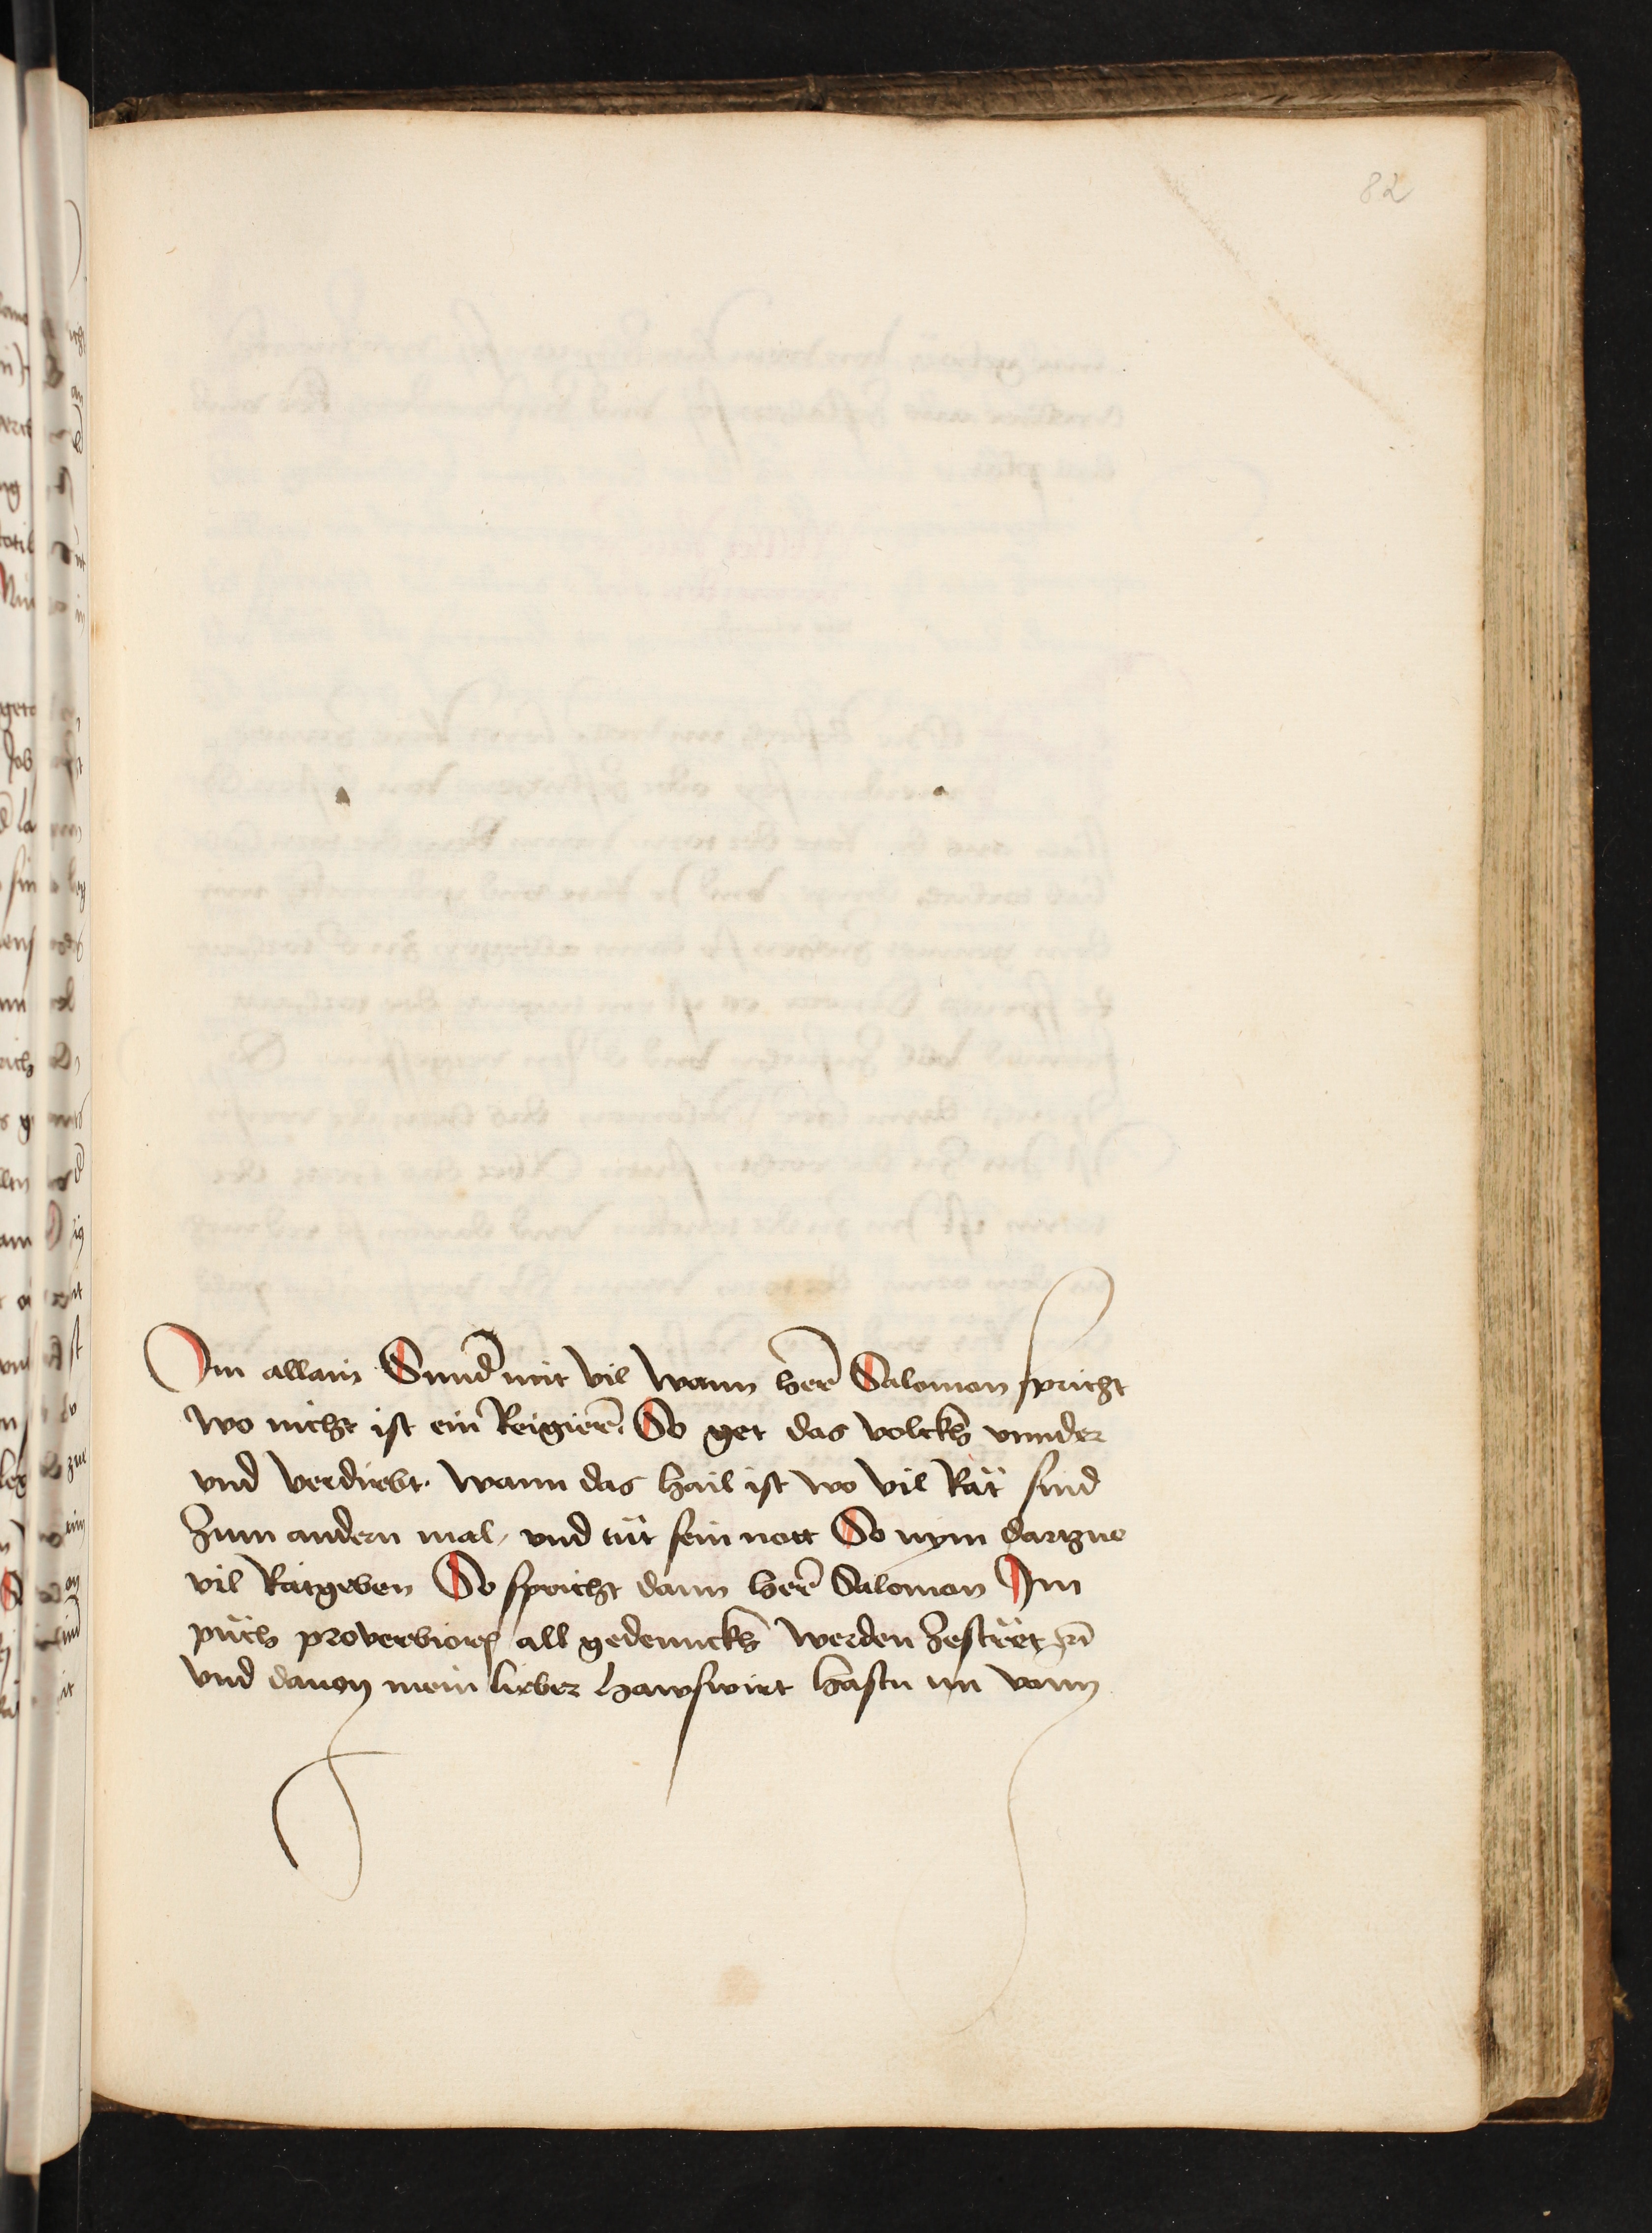 82
Im allain Sund̄ mit vil wann her̄ Salomon spricht
wo nicht ist ein Reigirer̄. So get das volckh vnnder
vnd verdirbt. wann das hail ist wo vil Rät sind
Zum andern mal, vnd tüt sein nott So nym dartzue
vil Ratgeben So spricht dann her̄ Salomon Im
püch proverbiorꝝ all gedennckh werden Zeströt
vnd dauon mein lieber hawswirt hastu im vonn